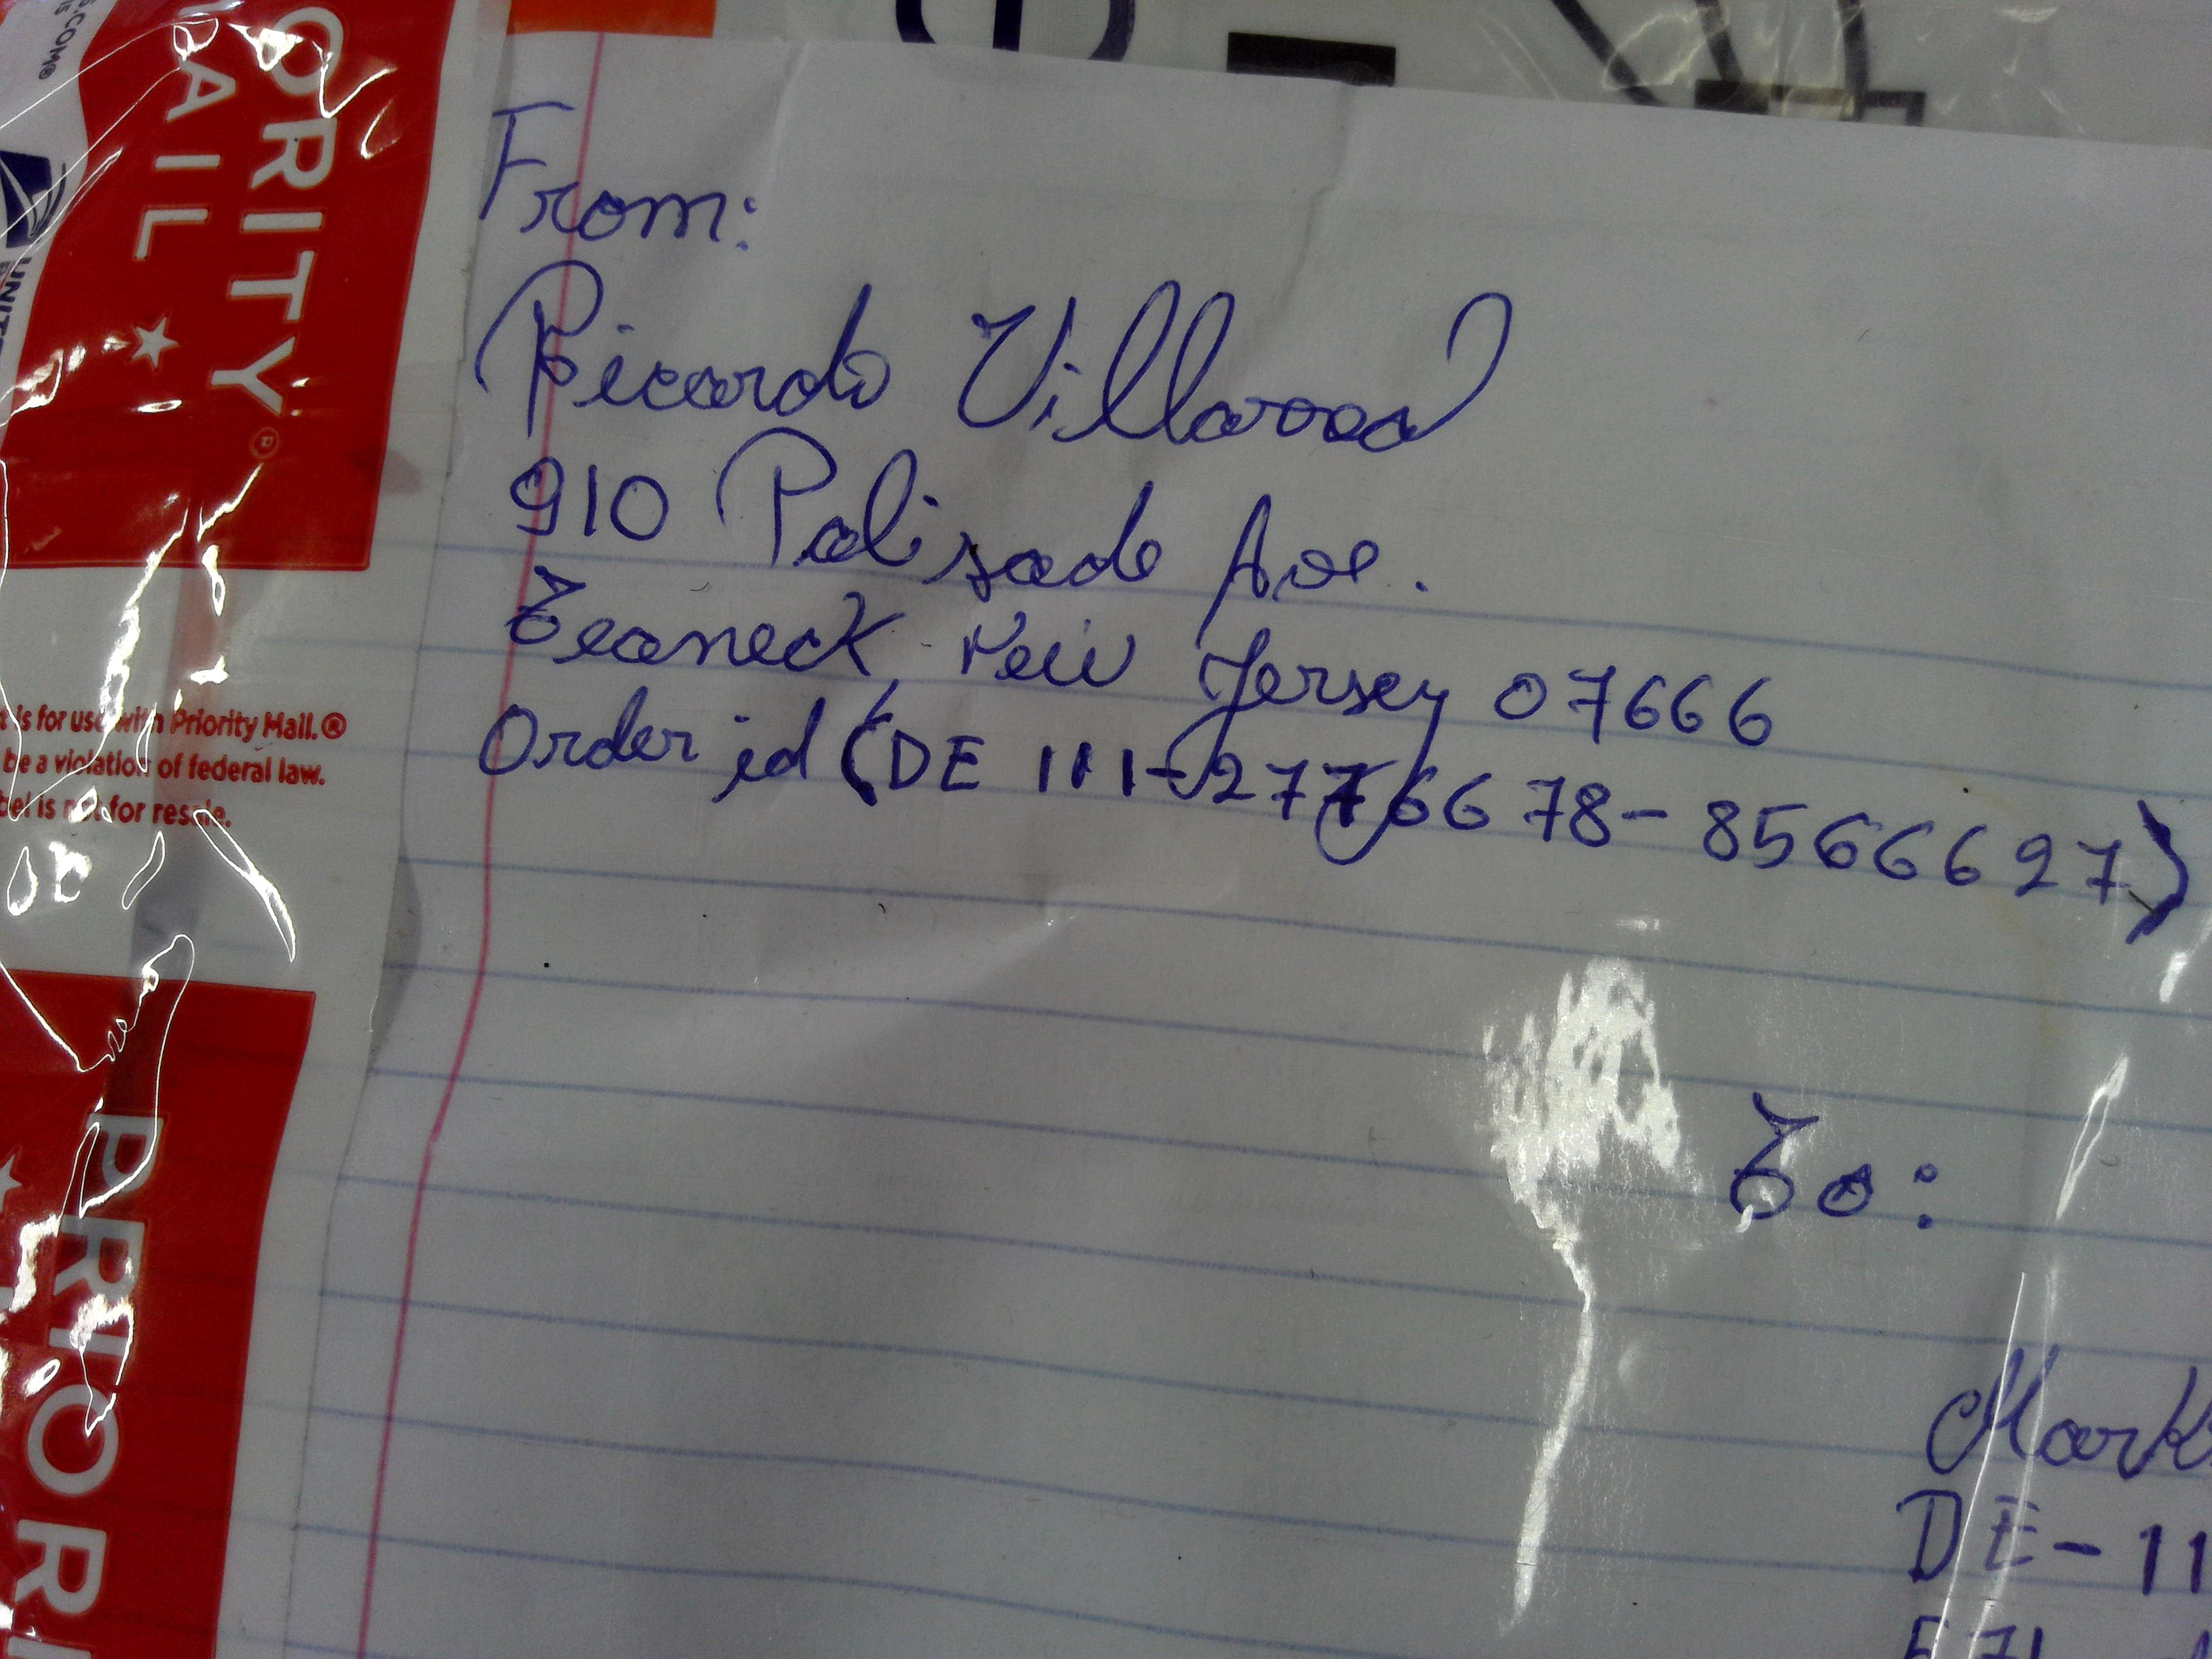 From:
Ricardo Villarroa
910 Palisade Ave.
Teaneck, New Jersey 07666
Order id (DE 111-2776678-8566697)
To:
Mark
DE-11
571
PRIORITY®
MAIL ★
UNITE
S.COM®
is for use with Priority Mail.®
be a violation of federal law.
bel is not for resale.
PRIORI